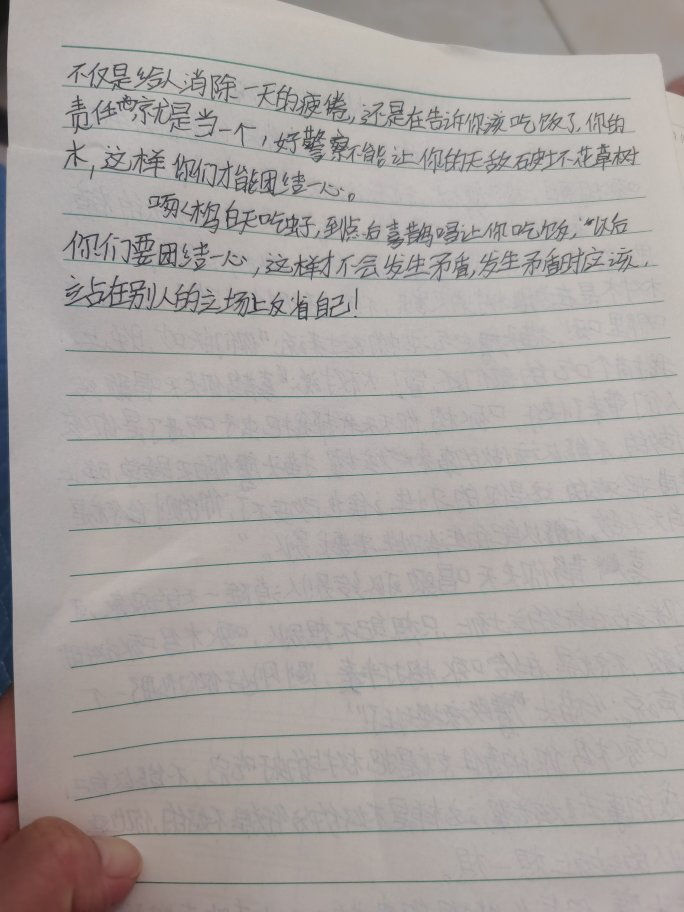 不仅是给人消除一天的疲倦，还是在告诉你该吃饭了，你的
责任就是当一个，好警察不能让你的天敌破坏花草树
木，这样你们才能团结一心。
啄木鸟白天吃虫子，到点后喜鹊唱让你吃饭，“以后
你们要团结一心，这样才不会发生矛盾，发生矛盾时应该，
立占在别人的立场上反省自己！